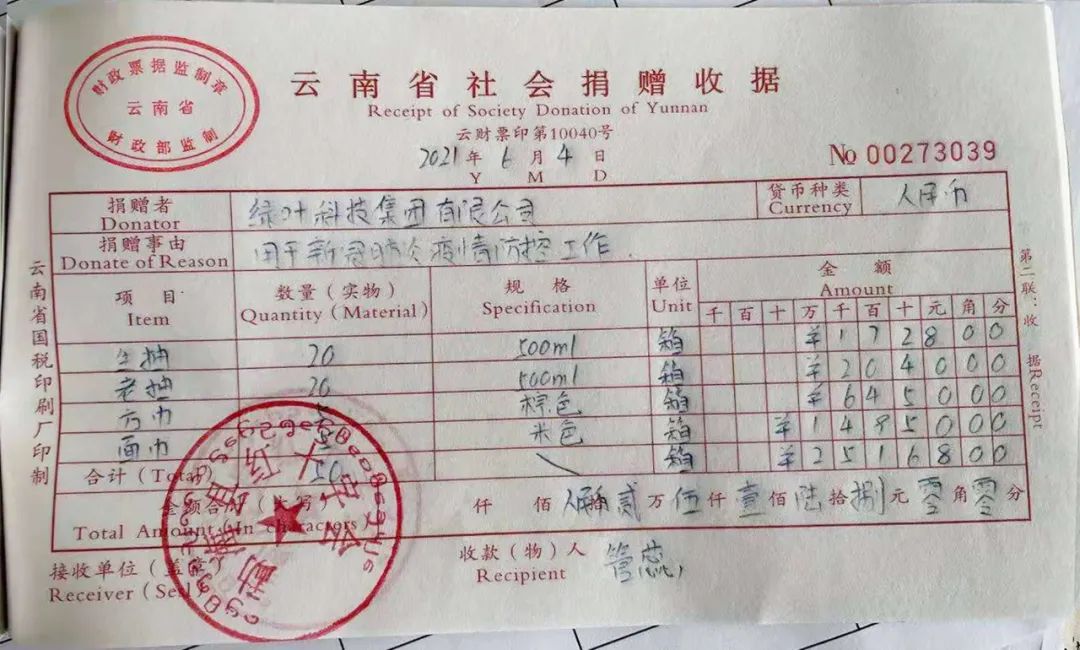 财政票据监制章
云南省
财政部监制
云南省社会捐赠收据
Receipt of Society Donation of Yunnan
云财票印第10040号
2021年6月4日
Y M D
No 00273039
捐赠者 Donator 绿叶科技集团有限公司 货币种类 Currency 人民币
捐赠事由 Donate of Reason 用于新冠肺炎疫情防控工作.
项目 Item 数量（实物） Quantity（Material） 规格 Specification 单位 Unit 金额 Amount
千 百 十 万 千 百 十 元 角 分
生抽 20 500ml 箱 ¥ 1 7 2 8 0 0
老抽 20 500ml 箱 ¥ 2 0 4 0 0 0
方巾 5 棕色 箱 ¥ 6 4 5 0 0 0
面巾 5 米色 箱 ¥ 1 4 9 5 0 0 0
合计（Total） 50 箱 ¥ 2 5 1 6 8 0 0
金额合计（大写） 仟 佰 贰万伍仟壹佰陆拾捌元零角零分
Total Amount（In characters）
接收单位（盖章）
Receiver（Seal）
收款（物）人 管蕊
Recipient
云南省国税印刷厂印制
第二联：收据Receipt